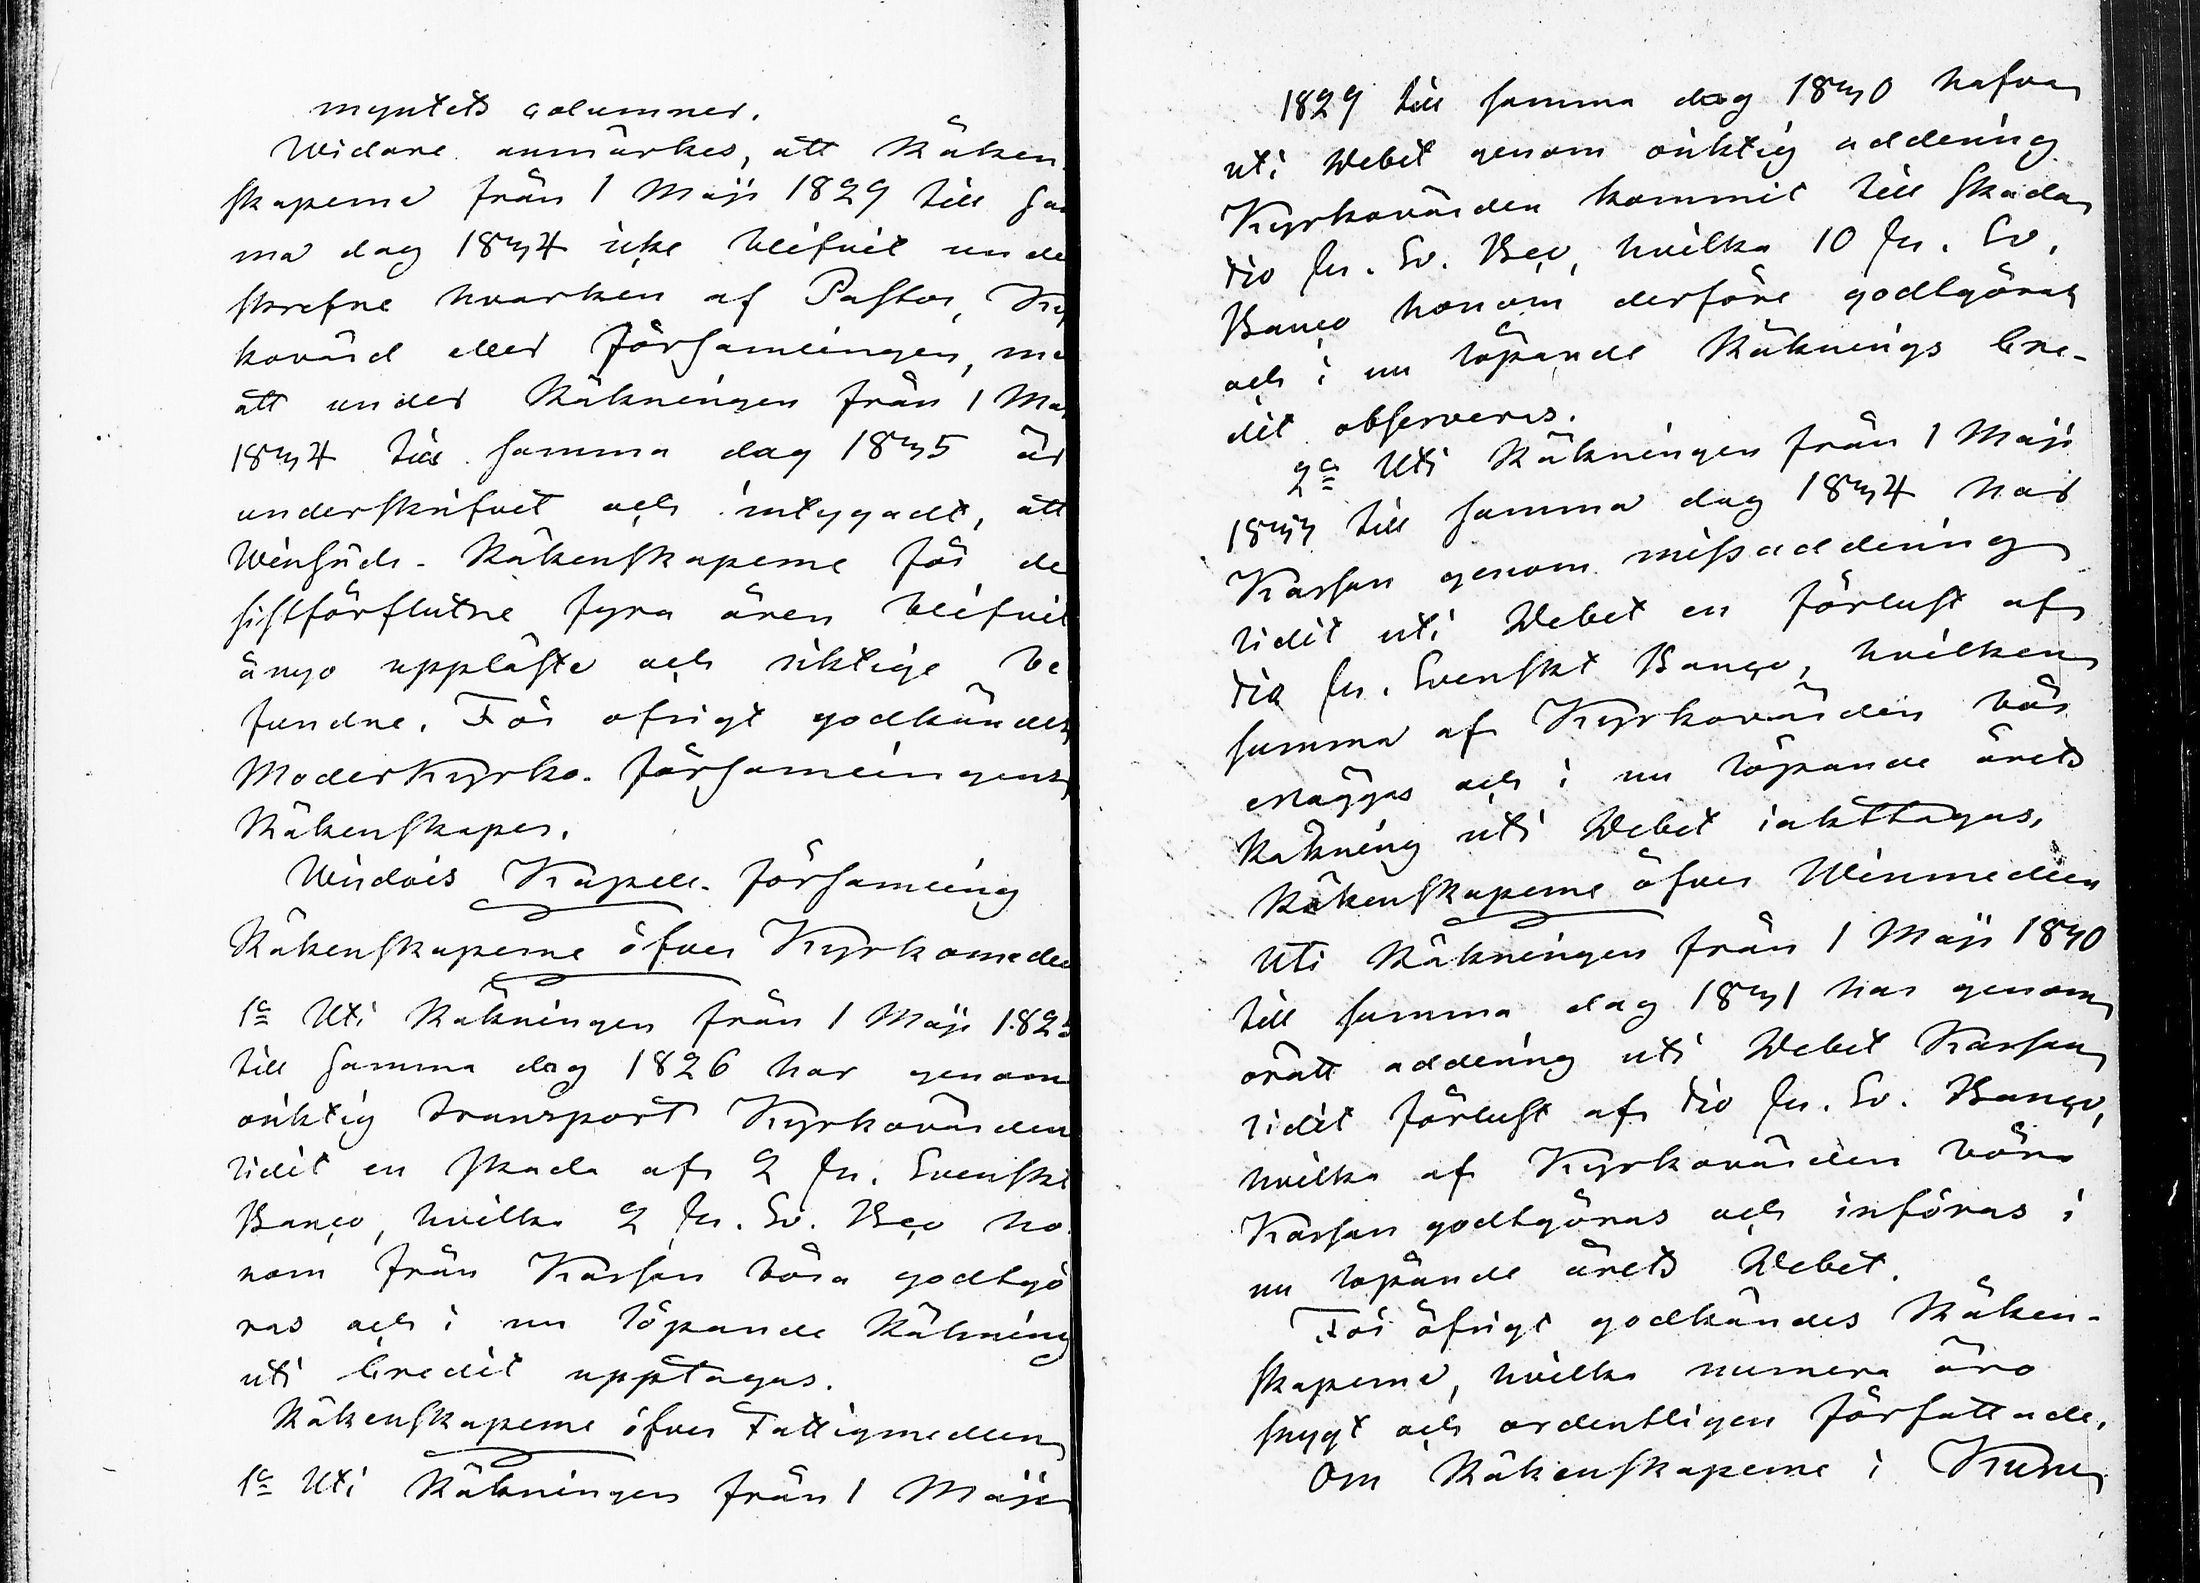 myntets columner.
Widare anmärkes, att Räken
skaperne från 1 Maji 1829 till sa
ma dag 1834 icke blifvit unde
skrefne hvarken af Pastor, Ky
kovärd eller Församlingen, me
att under Räkningen från 1 Ma
1834 till samma dag 1835 är
underskrifvet och intygadt, att
Räkenskaperne för de
sistförflutne fyra åren blifvit
ånyo uppläste och riktige be
fundne. För ofrigt godkändes
ModerKyrko-Församlingens
Räkenskaper.
Kapell-Församling
Räkenskaperne öfver Kyrkomedle
1o Uti Räkningen från 1 Maji 1825
till samma dag 1826 har genom
oriktig transport Kyrkovärden
lidit en skada af 2 sk. Svenskt
Banco, hvilka 2 sk. Sv. Bco ho
nom från Kassan böra godtgö
ras och i nu löpande Räkning
uti Credit upptagas.
Räkenskaperne öfver Fattigmedlen
1o Uti Räkningen från 1 Maji
1829 till samma dag 1830 hafva
uti Debet genom oriktig addering
Kyrkovärden kommit till skada
tio sk. Sv. Bco, hvilka 10 sk. Sv.
Banco honom derföre godtgöras
och i nu löpande Räknings Cre-
dit observeras.
2o Uti Räkningen från 1 Maji
1833 till samma dag 1834 har
Kassan genom missaddering
lidit uti Debet en förlust af
tio sk. Svenskt Banco, hvilken
summa af Kyrkovärden bör
erläggas och i nu löpande årets
Räkning uti Debet iakttagas.
Räkenskaperne öfver Winmedlen
Uti Räkningen från 1 Maji 1830
till samma dag 1831 har genom
orätt addering uti Debet Kassan
lidit förlust af tio sk. Sv. Banco,
hvilka af Kyrkovärden böra
Kassan godtgöras och införas i
nu löpande årets Debet.
För öfrigt godkändes Räken-
skaperne, hvilka numera äro
snygt och ordentligen författade.
Om Räkenskaperne i